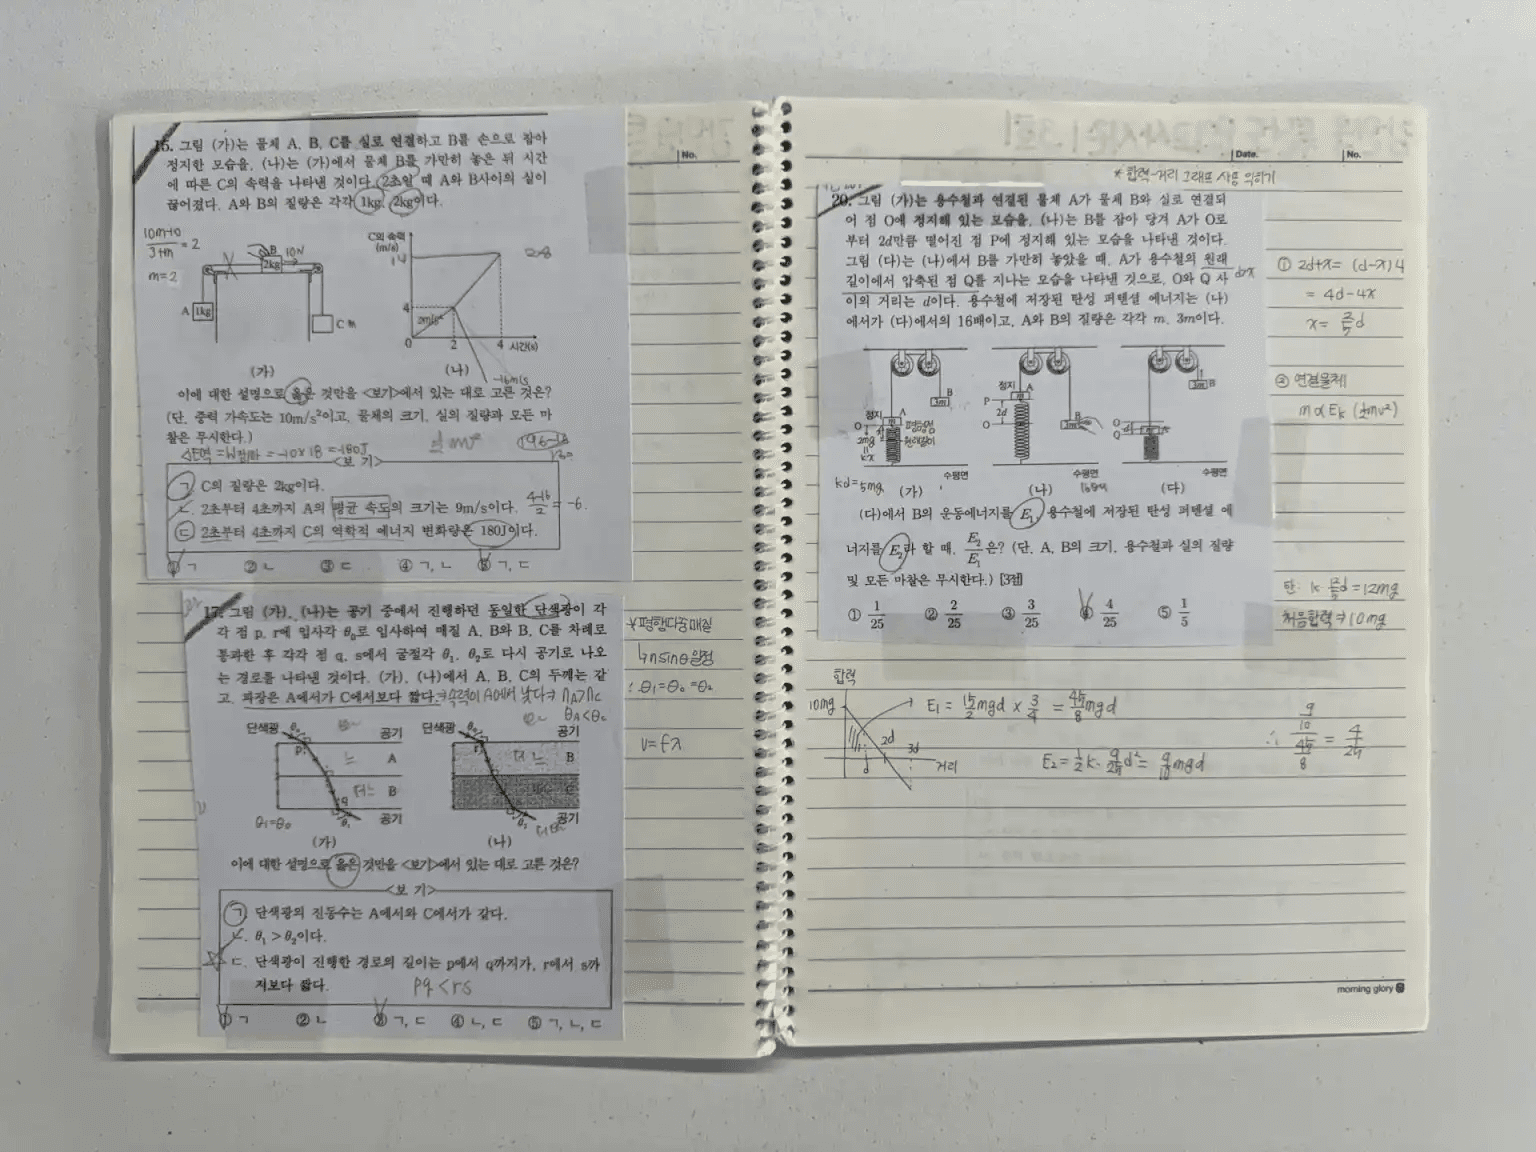 16. 그림 (가)는 물체 A, B, C를 실로 연결하고 B를 손으로 잡아
정지한 모습을, (나)는 (가)에서 물체 B를 가만히 놓은 뒤 시간
에 따른 C의 속력을 나타낸 것이다. 2초일 때 A와 B사이의 실이
끊어졌다. A와 B의 질량은 각각 1kg, 2kg이다.
m=2
B
10N
2kg
A 1kg
C m
C의 속력
(m/s)
4
2m/s²
0 2 4 시간(s)
-16m/s
(가) (나)
이에 대한 설명으로 옳은 것만을 <보기>에서 있는 대로 고른 것은?
(단, 중력 가속도는 10m/s²이고, 물체의 크기, 실의 질량과 모든 마
찰은 무시한다.)
½mv²
= -10×18 = -180J
<보 기>
ㄱ. C의 질량은 2kg이다.
ㄴ. 2초부터 4초까지 A의 평균 속도의 크기는 9m/s이다. (4-16)/2 = -6.
ㄷ. 2초부터 4초까지 C의 역학적 에너지 변화량은 180J이다.
① ㄱ ② ㄴ ③ ㄷ ④ ㄱ, ㄴ ⑤ ㄱ, ㄷ
17. 그림 (가), (나)는 공기 중에서 진행하던 동일한 단색광이 각
각 점 p, r에 입사각 θ₀로 입사하여 매질 A, B와 B, C를 차례로
통과한 후 각각 점 q, s에서 굴절각 θ₁, θ₂로 다시 공기로 나오
는 경로를 나타낸 것이다. (가), (나)에서 A, B, C의 두께는 같
고, 파장은 A에서가 C에서보다 짧다. ⇒속력이 A에서 낮다⇒ nA>nC
θA<θc
단색광 θ₀ 공기
p
A
B
q
θ₁ 공기
θ₁=θ₀
(가)
단색광 θ₀ 공기
r
B
C
공기
(나)
이에 대한 설명으로 옳은 것만을 <보기>에서 있는 대로 고른 것은?
<보 기>
ㄱ. 단색광의 진동수는 A에서와 C에서가 같다.
ㄴ. θ₁ > θ₂이다.
ㄷ. 단색광이 진행한 경로의 길이는 p에서 q까지가, r에서 s까
지보다 짧다.
pq < rs
① ㄱ ② ㄴ ③ ㄱ, ㄷ ④ ㄴ, ㄷ ⑤ ㄱ, ㄴ, ㄷ
No.
*평행다중매질
nsinθ일정
∴ θ₁=θ₀=θ₂
v=fλ
Date. No.
*합력-거리 그래프 사용 익히기
20. 그림 (가)는 용수철과 연결된 물체 A가 물체 B와 실로 연결되
어 점 O에 정지해 있는 모습을, (나)는 B를 잡아 당겨 A가 O로
부터 2d만큼 떨어진 점 P에 정지해 있는 모습을 나타낸 것이다.
그림 (다)는 (나)에서 B를 가만히 놓았을 때, A가 용수철의 원래
길이에서 압축된 점 Q를 지나는 모습을 나타낸 것으로, O와 Q 사
이의 거리는 d이다. 용수철에 저장된 탄성 퍼텐셜 에너지는 (나)
에서가 (다)에서의 16배이고, A와 B의 질량은 각각 m, 3m이다.
d-x
정지 A
O
2mg
kx
평형점
원래길이
B
3m
수평면
(가)
정지 A
P m
2d
O
B
3m
수평면
(나)
3m B
O
Q
A
수평면
(다)
kd=5mg
(다)에서 B의 운동에너지를 E₁, 용수철에 저장된 탄성 퍼텐셜 에
너지를 E₂라 할 때, E₂/E₁은? (단, A, B의 크기, 용수철과 실의 질량
및 모든 마찰은 무시한다.) [3점]
① 1/25 ② 2/25 ③ 3/25 ④ 4/25 ⑤ 1/5
① 2d+x= (d-x)4
= 4d-4x
x= 2/5 d
② 연결물체
m∝Ek (½mv²)
k·12/5 d=12mg
처음합력⇒10mg
합력
10mg
d
2d
3d
거리
E₁ = 15/2 mgd × 3/4 = 45/8 mgd
E₂= ½k· 9/25 d² = 9/10 mgd
∴ (9/10)/(45/8) = 4/25
morning glory